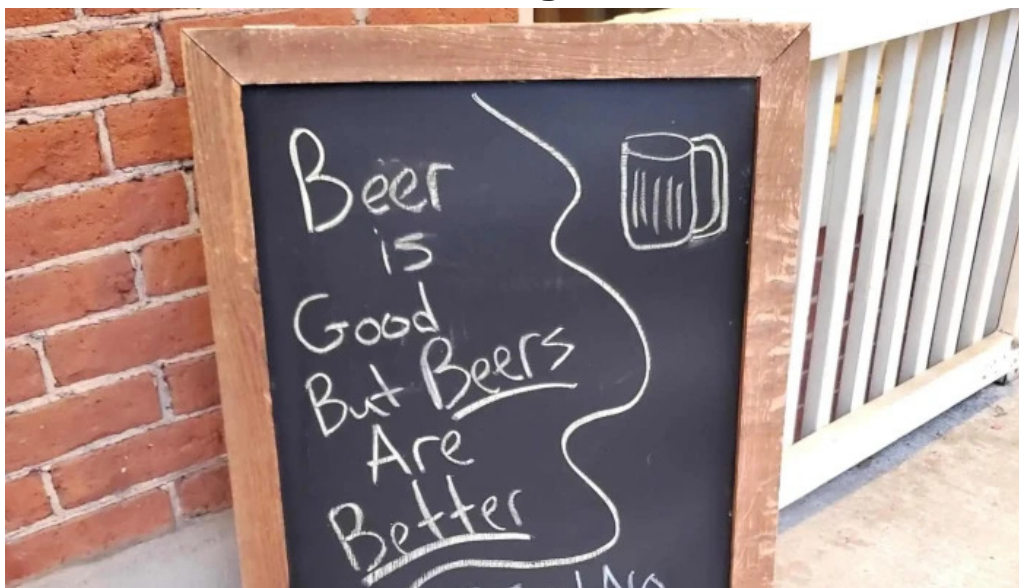 Beer
is
Good
But Beers
Are
Better